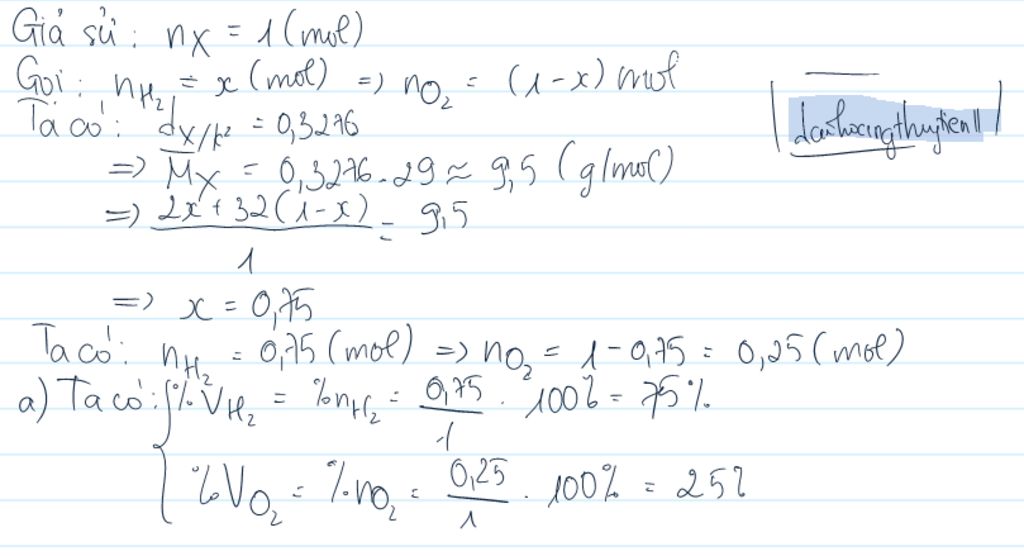 Giả sử: nX = 1 (mol)
Gọi: nH₂ = x (mol) => nO₂ = (1-x) mol
Ta có: dX/k² = 0,3276
=> MX = 0,3276.29 ≈ 9,5 (g/mol)
=> (2x + 32(1-x))/1 = 9,5
=> x = 0,75
Ta có: nH₂ = 0,75 (mol) => nO₂ = 1-0,75 = 0,25 (mol)
a) Ta có: { %VH₂ = %nH₂ = 0,75/1 . 100% = 75%
%VO₂ = %nO₂ = 0,25/1 . 100% = 25%